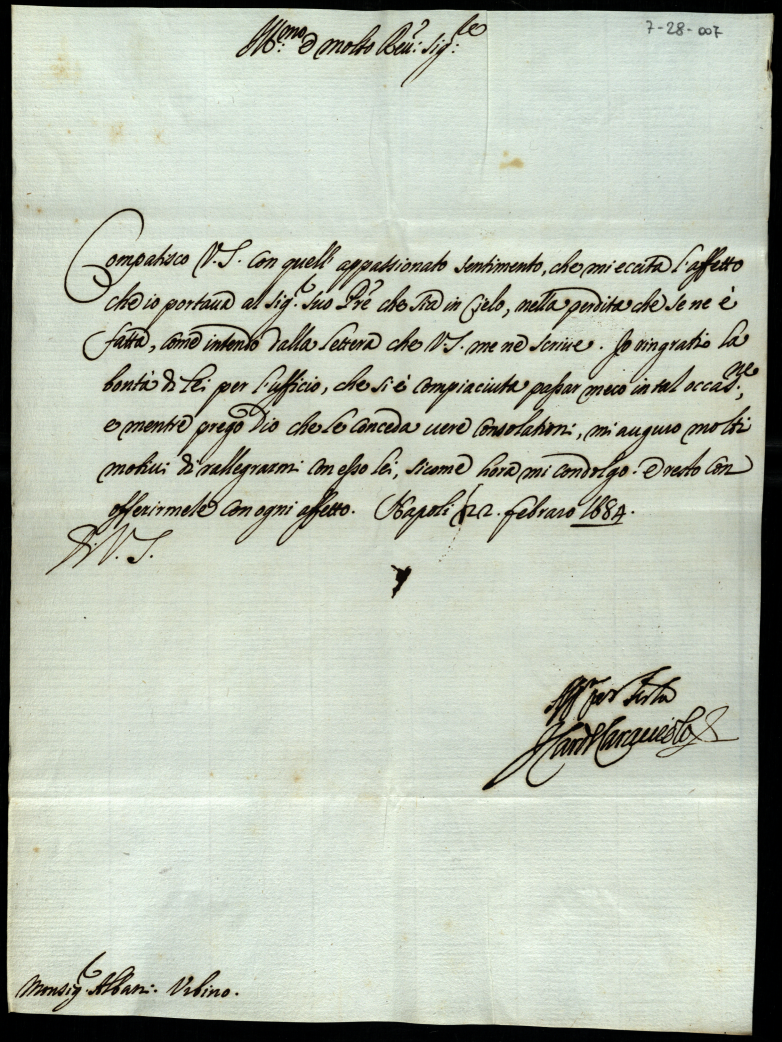 7-28-007
Ill.mo e molto Reu: Sig.re
Compatisco V.S. con quell' appassionato sentimento, che mi eccita l'affetto
che io portaua al Sig.r suo Pre che stà in Cielo, nella perdita che se ne è
fatta, come intendo dalla lettera che V.S. me ne scriue. Io ringratio la
bontà di lei per l'ufficio, che si è compiaciuta passar meco in tal occas.ne;
e mentre prego Dio che le conceda uere consolationi, mi auguro molti
motiui di rallegrarmi con esso lei, sicome hora mi condolgo. e resto con
offerirmele con ogni affetto. Napoli 22. febraro 1684.
Di V.S.
Aff.mo per
Il Card. Caracciolo
Monsig.r Albani. Vrbino.